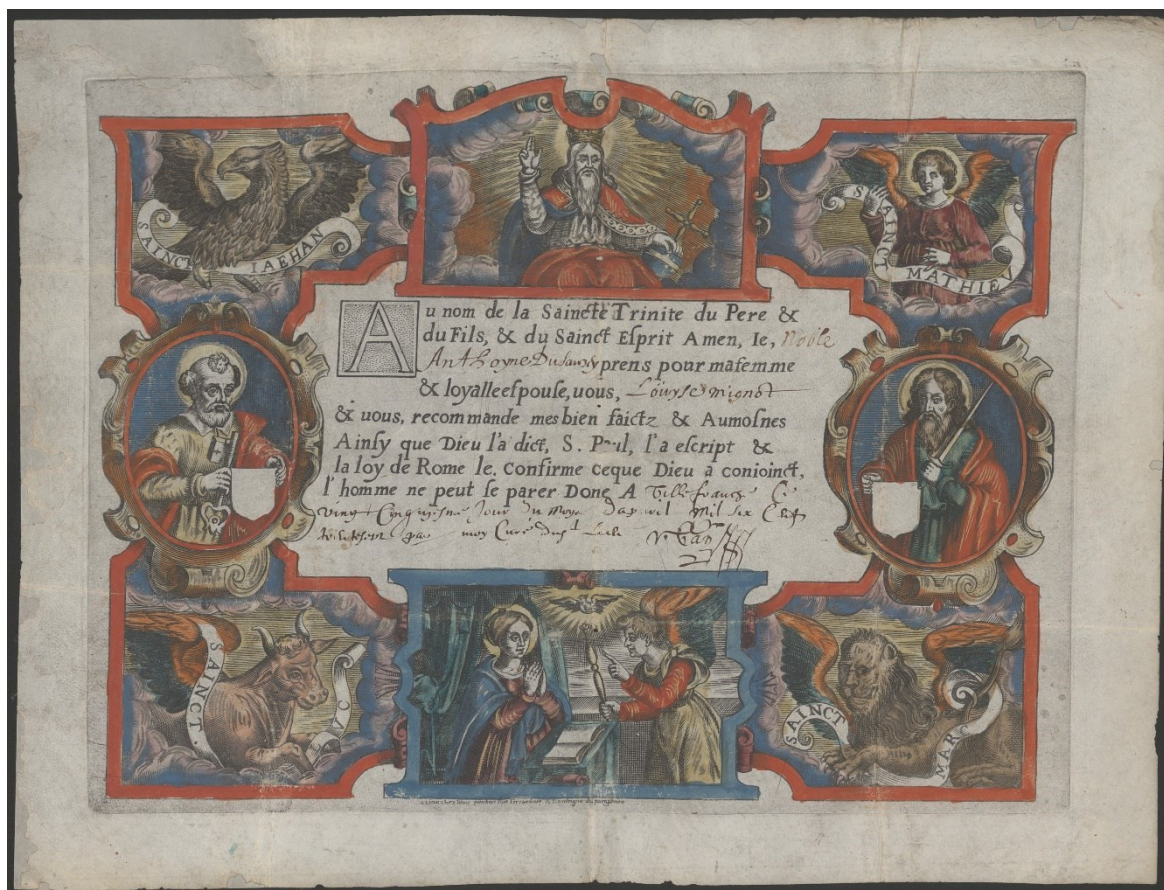 SAINCT IAEHAN
SAINCT MATHIEV
Au nom de la Saincte Trinite du Pere &
du Fils, & du Sainct Esprit Amen, Ie, Noble
Anthoyne prens pour mafemme
& loyalleespouse, uous, Louyse mignot
& uous, recommande mes bien faictz & Aumosnes
Ainsy que Dieu l'a dict, S. Paul, l'a escript &
la loy de Rome le. Confirme ceque Dieu a conioinct,
l'homme ne peut se parer Donè A Villefranche Ce
vingt Cinquiesme Jour du Moys Mil six
moy Curé
SAINCT LVC
SAINCT MARC